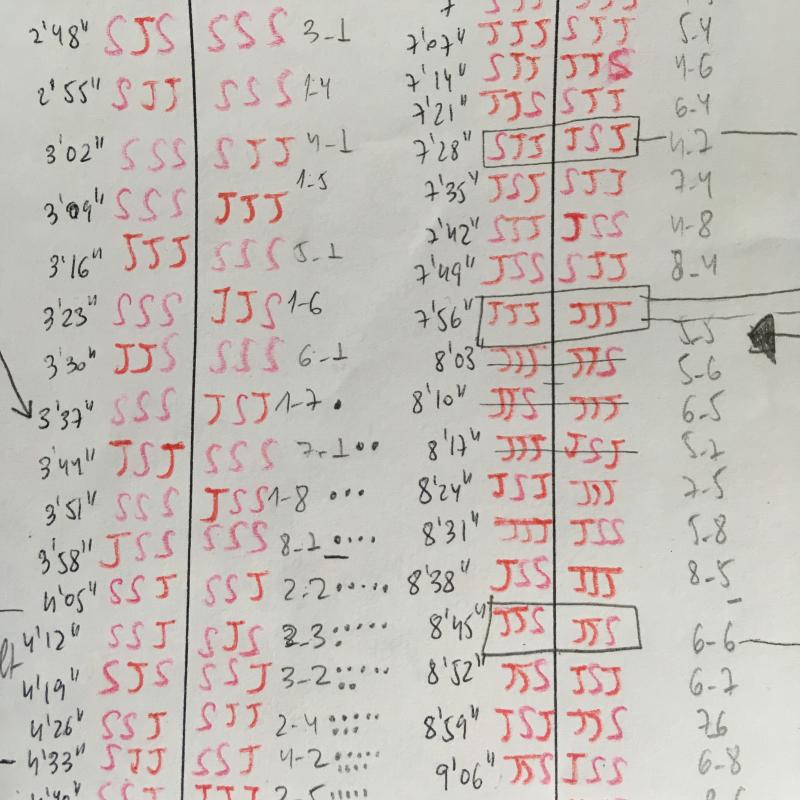 2'48" SJS SSS 3-1
2'55" SJJ SSS 1-4
3'02" SSS SJJ 4-1
3'09" SSS JJJ 1-5
3'16" JJJ SSS 5-1
3'23" SSS JJS 1-6
3'30" JJS SSS 6-1
3'37" SSS JSJ 1-7
3'44" JSJ SSS 7-1
3'51" SSS JSS 1-8
3'58" JSS SSS 8-1
4'05" SSJ SSJ 2-2
4'12" SSJ SJS 2-3
4'19" SJS SSJ 3-2
4'26" SSJ SJJ 2-4
4'33" SJJ SSJ 4-2
SSJ JJJ 2-5
7'07" JJJ SJJ 5-4
7'14" SJJ JJS 4-6
7'21" JJS SJJ 6-4
7'28" SJJ JSJ 4-7
7'35" JSJ SJJ 7-4
7'42" SJJ JSS 4-8
7'49" JSS SJJ 8-4
7'56" JJJ JJJ 5-5
8'03 JJJ JJS 5-6
8'10" JJS JJJ 6-5
8'17" JJJ JSJ 5-7
8'24" JSJ JJJ 7-5
8'31" JJJ JSS 5-8
8'38" JSS JJJ 8-5
8'45" JJS JJS 6-6
8'52" JJS JSJ 6-7
8'59" JSJ JJS 76
9'06" JJS JSS 6-8